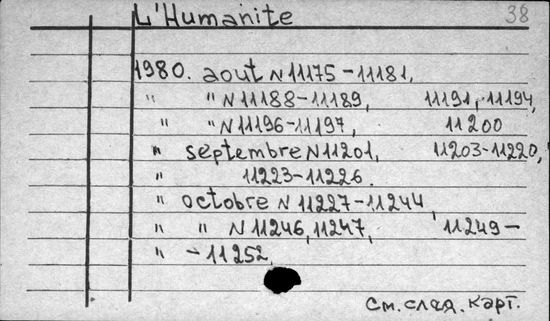 L'Humanite 38
1980. aout N 11175-11181,
" " N 11188-11189, 11191, 11194,
" " N 11196-11197, 11200
" septembre N 11201, 11203-11220,
" 11223-11226.
" octobre N 11227-11244,
" " N 11246, 11247, 11249-
" -11252
См. след. карт.